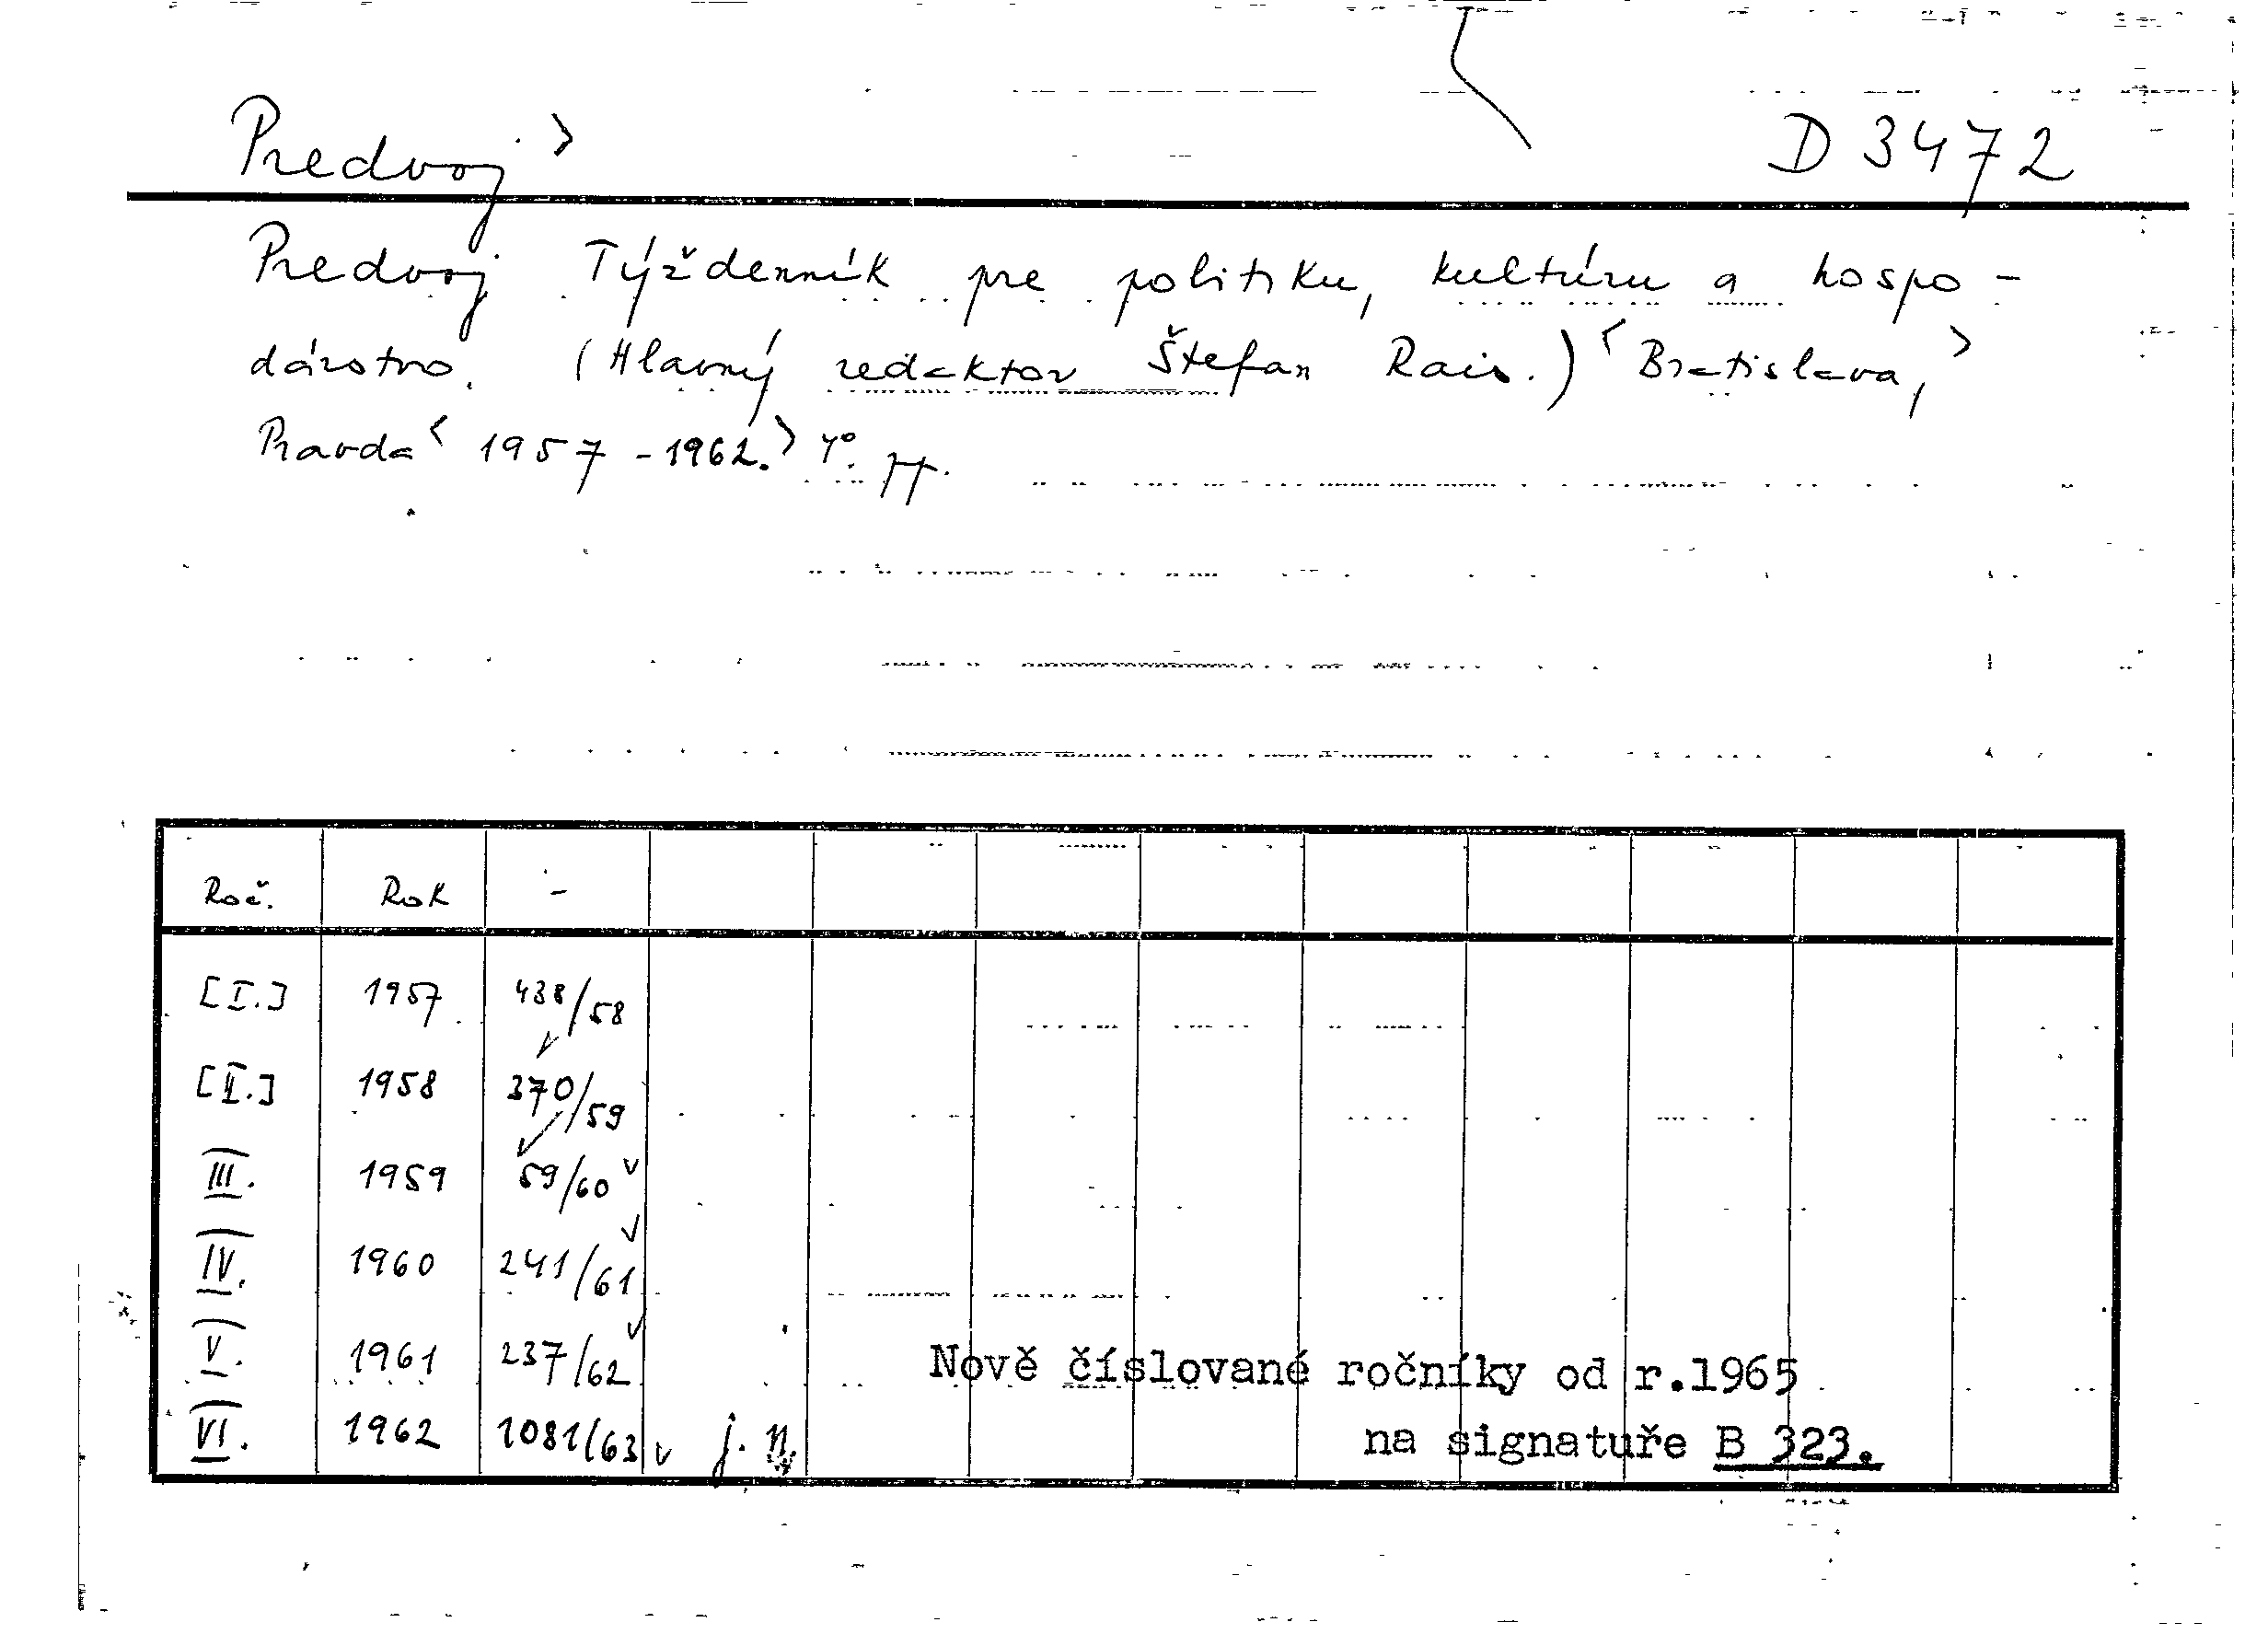 Predvoj >
D 3472
Predvoj Týždenník pre politiku, kultúru a hospo-
dárstvo. (Hlavný redaktor Štefan Rais.) < Bratislava, >
Pravda < 1957 - 1962. > 4°.
Roč. Rok -
[I.] 1957 438/58
[II.] 1958 370/59
III. 1959 59/60
IV. 1960 241/61
V. 1961 237/62
VI. 1962 1081/63 j. n.
Nově číslované ročníky od r.1965
na signatuře B 323.